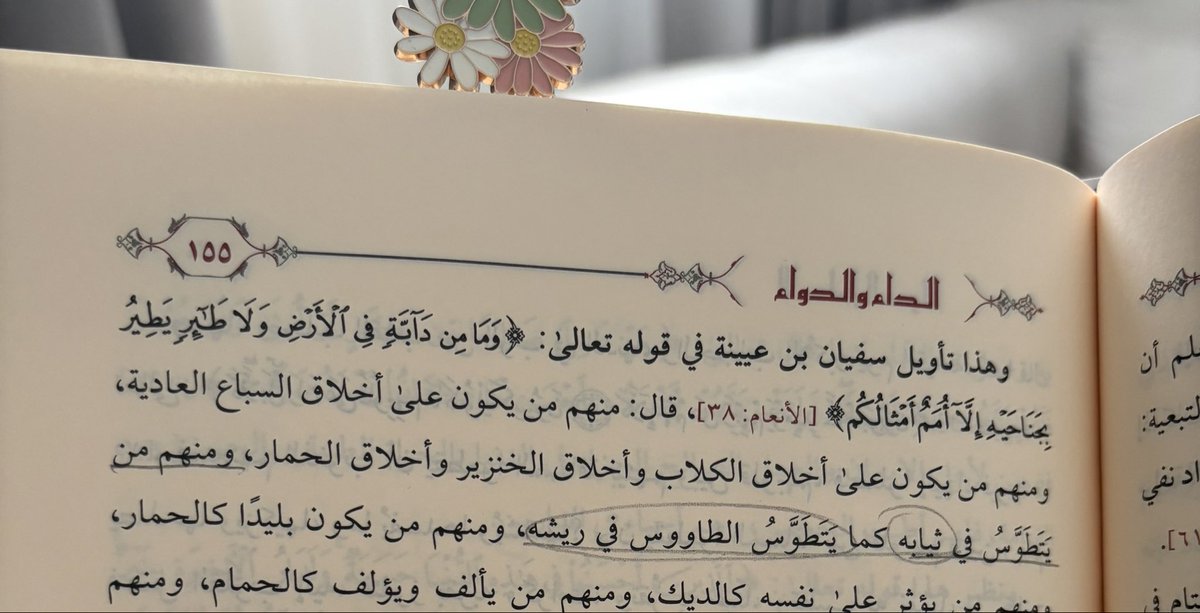 ١٥٥
الداء والدواء
وهذا تأويل سفيان بن عيينة في قوله تعالىٰ: ﴿وَمَا مِن دَآبَّةٖ فِي ٱلۡأَرۡضِ وَلَا طَٰٓئِرٖ يَطِيرُ
بِجَنَاحَيۡهِ إِلَّآ أُمَمٌ أَمۡثَالُكُم﴾ [الأنعام: ٣٨]، قال: منهم من يكون علىٰ أخلاق السباع العادية،
ومنهم من يكون علىٰ أخلاق الكلاب وأخلاق الخنزير وأخلاق الحمار، ومنهم من
يَتَطَوَّسُ في ثيابه كما يَتَطَوَّسُ الطاووس في ريشه، ومنهم من يكون بليدًا كالحمار،
ومنهم من يؤثر علىٰ نفسه كالديك، ومنهم من يألف ويؤلف كالحمام، ومنهم
أن
التبعية:
نفي